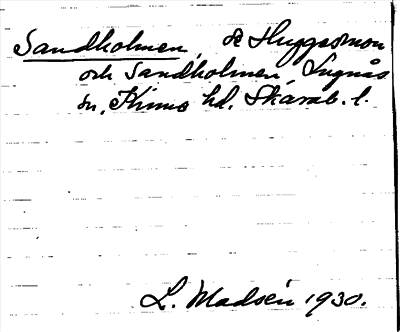 Sandholmen, se Huggesmon
och Sandholmen, Lugnås
sn, Kinne hd. Skarab. l.
L. Madsén 1930.